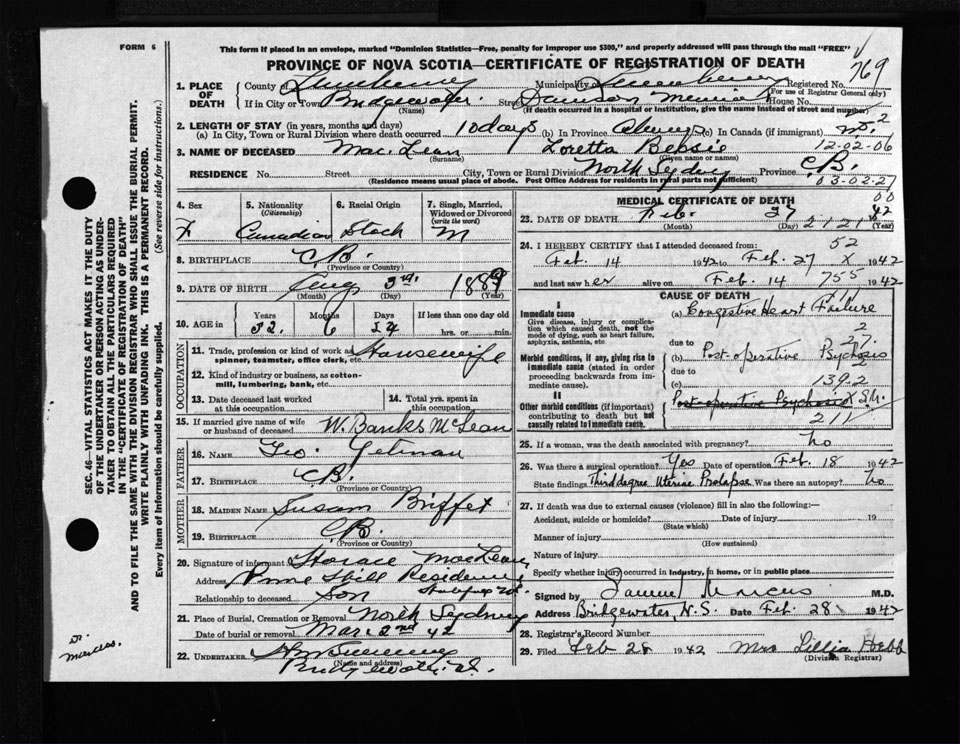 FORM 6
This form if placed in an envelope, marked "Dominion Statistics—Free, penalty for improper use $300," and properly addressed will pass through the mail "FREE"
PROVINCE OF NOVA SCOTIA—CERTIFICATE OF REGISTRATION OF DEATH
769
1. PLACE OF DEATH County of Lunenburg Municipality of Lunenburg Registered No.
(For use of Registrar General only)
If in City or Town Bridgewater Street Dawson Memorial House No.
(Name) (If death occurred in a hospital or institution, give the name instead of street and number)
2. LENGTH OF STAY (in years, months and days)
(a) In City, Town or Rural Division where death occurred 10 days (b) In Province Always (c) In Canada (if immigrant)
12-02-06
3. NAME OF DECEASED MacLean Loretta Bessie
(Surname) (Given name or names)
RESIDENCE No. Street City, Town or Rural Division North Sydney Province C.B.
(Residence means usual place of abode. Post Office Address for residents in rural parts not sufficient)
03-02-27
00
4. Sex F
5. Nationality (Citizenship) Canadian
6. Racial Origin
7. Single, Married, Widowed or Divorced (write the word) M
8. BIRTHPLACE C.B.
(Province or Country)
9. DATE OF BIRTH Aug 3rd 1889
(Month) (Day) (Year)
10. AGE in Years Months Days If less than one day old
52 6 24 hrs. or min.
OCCUPATION
11. Trade, profession or kind of work as spinner, teamster, office clerk, etc. Housewife
12. Kind of industry or business, as cotton-mill, lumbering, bank, etc.
13. Date deceased last worked at this occupation
14. Total yrs. spent in this occupation
15. If married give name of wife or husband of deceased W. Banks McLean
FATHER
16. Name Geo. Yetman
17. Birthplace C.B.
(Province or Country)
MOTHER
18. MAIDEN NAME Susan Briffet
19. BIRTHPLACE C.B.
(Province or Country)
20. Signature of informant Horace MacLean
Address Pine Hill Residence
Halifax N.S.
Relationship to deceased Son
21. Place of Burial, Cremation or Removal North Sydney
Date of burial or removal Mar. 2nd 42
22. UNDERTAKER
(Name and address)
Bridgewater N.S.
MEDICAL CERTIFICATE OF DEATH
23. DATE OF DEATH Feb. 27 42
(Month) (Day) (Year)
2121
24. I HEREBY CERTIFY that I attended deceased from: 52
Feb. 14 1942 to Feb. 27 X 1942
and last saw her alive on Feb. 14 755 1942
CAUSE OF DEATH
I
Immediate cause
Give disease, injury or complication which caused death, not the mode of dying, such as heart failure, asphyxia, asthenia, etc
(a) Congestive Heart Failure
due to
Morbid conditions, if any, giving rise to immediate cause (stated in order proceeding backwards from immediate cause).
(b) Post-operative Psychosis
due to
(c)
1392
II
Other morbid conditions (if important) contributing to death but not causally related to immediate cause.
Post-operative Psychosis
211
25. If a woman, was the death associated with pregnancy? No
26. Was there a surgical operation? Yes Date of operation Feb. 18 1942
State findings Third degree Uterine Prolapse Was there an autopsy? No
27. If death was due to external causes (violence) fill in also the following:—
Accident, suicide or homicide? Date of injury 19
(State which)
Manner of injury
(How sustained)
Nature of injury
Specify whether injury occurred in industry, in home, or in public place
Signed by Samuel Marcus M.D.
Address Bridgewater, N.S. Date Feb. 28 1942
28. Registrar's Record Number
29. Filed Feb 28 1942 Mrs Lillia Hebb
(Division Registrar)
SEC. 46—VITAL STATISTICS ACT MAKES IT THE DUTY
OF THE UNDERTAKER OR PERSON ACTING AS UNDER-
TAKER TO OBTAIN ALL THE PARTICULARS REQUIRED
IN THE "CERTIFICATE OF REGISTRATION OF DEATH"
AND TO FILE THE SAME WITH THE DIVISION REGISTRAR WHO SHALL ISSUE THE BURIAL PERMIT.
WRITE PLAINLY WITH UNFADING INK. THIS IS A PERMANENT RECORD.
Every item of Information should be carefully supplied. (See reverse side for instructions.)
Dr. Marcus.